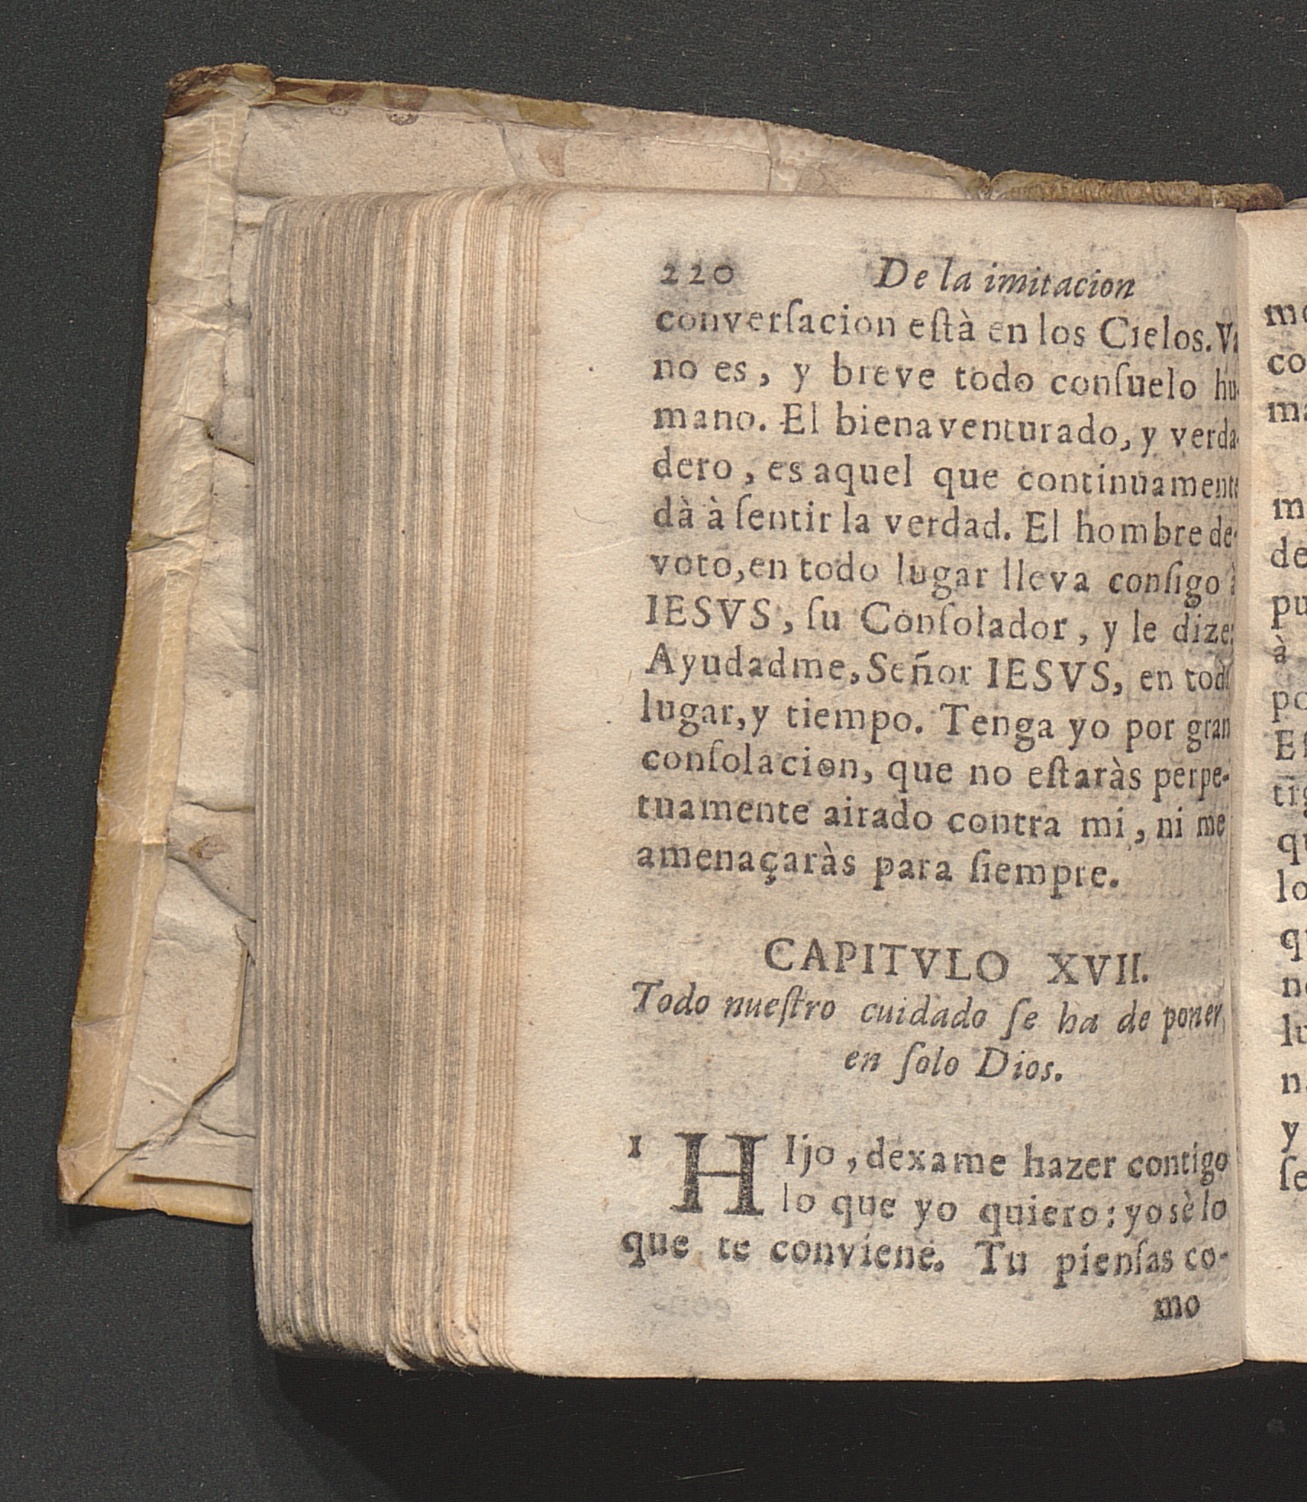 220 De la imitacion
converſacion eſtà en los Cielos. Va
no es, y breve todo conſuelo hu-
mano. El bienaventurado, y verda-
dero, es aquel que continuamente
dà à ſentir la verdad. El hombre de-
voto, en todo lugar lleva conſigo à
IESVS, ſu Conſolador, y le dize:
Ayudadme, Señor IESVS, en todo
lugar, y tiempo. Tenga yo por gran
conſolacion, que no eſtaràs perpe-
tuamente airado contra mi, ni me
amenaçaràs para ſiempre.
CAPITVLO XVII.
Todo nueſtro cuidado ſe ha de poner
en ſolo Dios.
1 HIjo, dexame hazer contigo
lo que yo quiero: yo sè lo
que te conviene. Tu pienſas co-
mo
mo
co
ma
m
de
pu
à
po
Eſ
tig
qu
lo
qu
no
lu
n
y
ſe